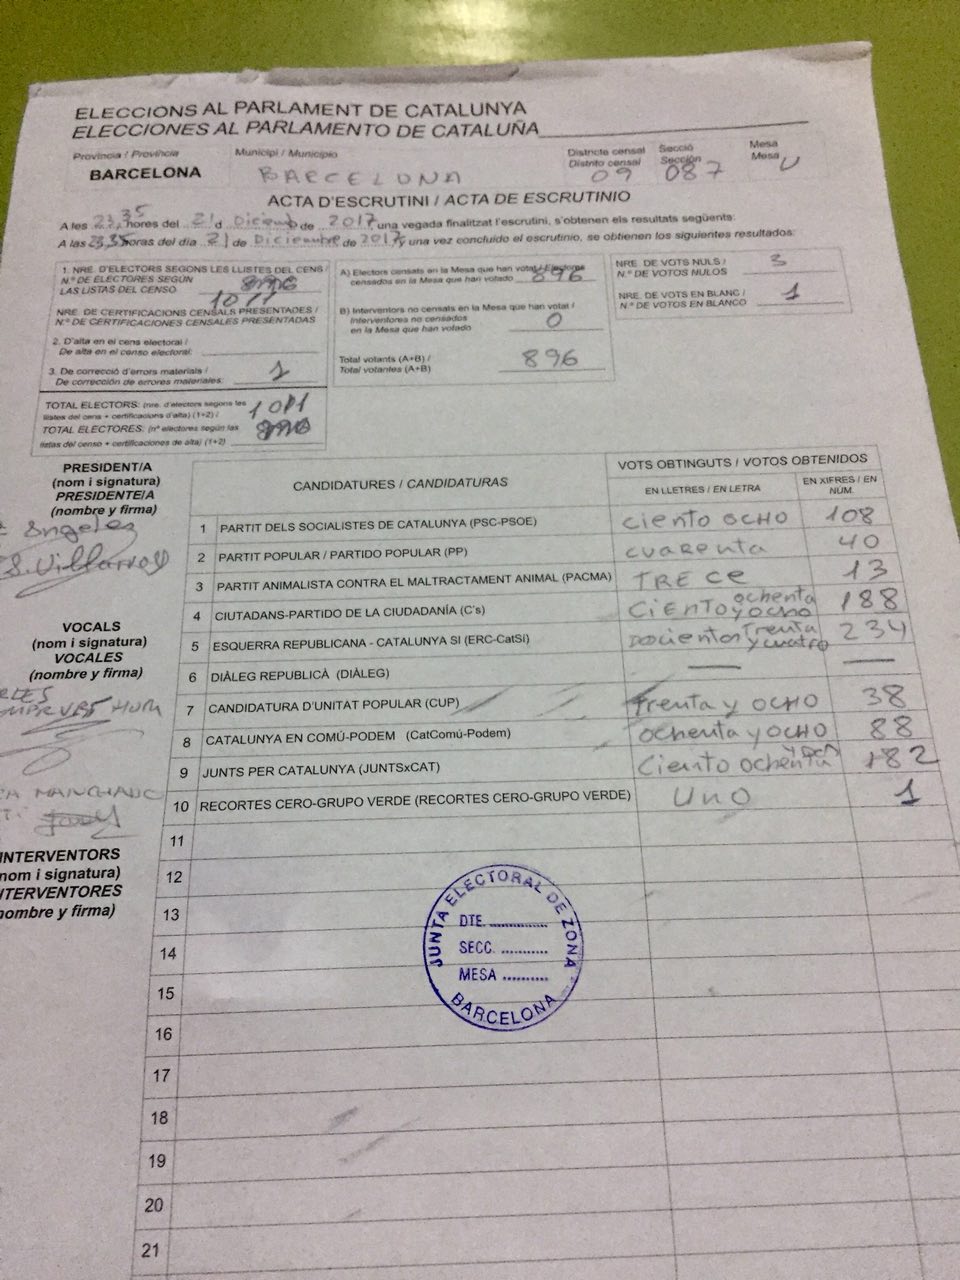 ELECCIONS AL PARLAMENT DE CATALUNYA
ELECCIONES AL PARLAMENTO DE CATALUÑA
Provincia / Província
BARCELONA
Municipi / Municipio
BARCELONA
Districte censal
Distrito censal
09
Secció
Sección
087
Mesa
Mesa U
ACTA D'ESCRUTINI / ACTA DE ESCRUTINIO
A les 23,35 hores del 21 d Diciemb de 2017, una vegada finalitzat l'escrutini, s'obtenen els resultats següents:
A las 23,35 horas del día 21 de Diciembre de 2017, una vez concluido el escrutinio, se obtienen los siguientes resultados:
1. NRE. D'ELECTORS SEGONS LES LLISTES DEL CENS /
N.º DE ELECTORES SEGÚN
LAS LISTAS DEL CENSO
NRE. DE CERTIFICACIONS CENSALS PRESENTADES /
N.º DE CERTIFICACIONES CENSALES PRESENTADAS
2. D'alta en el cens electoral /
De alta en el censo electoral:
3. De correcció d'errors materials /
De corrección de errores materiales: 1
TOTAL ELECTORS: (nre. d'electors segons les
llistes del cens + certificacions d'alta) (1+2) /
TOTAL ELECTORES: (nº electores según las
listas del censo + certificaciones de alta) (1+2)
A) Electors censats en la Mesa que han votat / Electores
censados en la Mesa que han votado 896
B) Interventors no censats en la Mesa que han votat /
Interventores no censados
en la Mesa que han votado 0
Total votants (A+B) /
Total votantes (A+B) 896
NRE. DE VOTS NULS /
N.º DE VOTOS NULOS 3
NRE. DE VOTS EN BLANC /
N.º DE VOTOS EN BLANCO 1
PRESIDENT/A
(nom i signatura)
PRESIDENTE/A
(nombre y firma)
Angeles
VOCALS
(nom i signatura)
VOCALES
(nombre y firma)
MANCHADO
INTERVENTORS
nom i signatura)
NTERVENTORES
nombre y firma)
CANDIDATURES / CANDIDATURAS
VOTS OBTINGUTS / VOTOS OBTENIDOS
EN LLETRES / EN LETRA
EN XIFRES / EN
NÚM.
1 PARTIT DELS SOCIALISTES DE CATALUNYA (PSC-PSOE) ciento OCHO 108
2 PARTIT POPULAR / PARTIDO POPULAR (PP) cuarenta 40
3 PARTIT ANIMALISTA CONTRA EL MALTRACTAMENT ANIMAL (PACMA) TRECE 13
4 CIUTADANS-PARTIDO DE LA CIUDADANÍA (C's) Ciento ochenta y ocho 188
5 ESQUERRA REPUBLICANA - CATALUNYA SI (ERC-CatSí) Doscientos Trenta y cuatro 234
6 DIÀLEG REPUBLICÀ (DIÀLEG) — —
7 CANDIDATURA D'UNITAT POPULAR (CUP) trenta y OCHO 38
8 CATALUNYA EN COMÚ-PODEM (CatComú-Podem) ochenta y OCHO 88
9 JUNTS PER CATALUNYA (JUNTSxCAT) Ciento ochenta y DOS 182
10 RECORTES CERO-GRUPO VERDE (RECORTES CERO-GRUPO VERDE) UNO 1
11
12
13
14
15
16
17
18
19
20
21
JUNTA ELECTORAL DE ZONA
DTE. ............
SECC. ...........
MESA ..........
BARCELONA